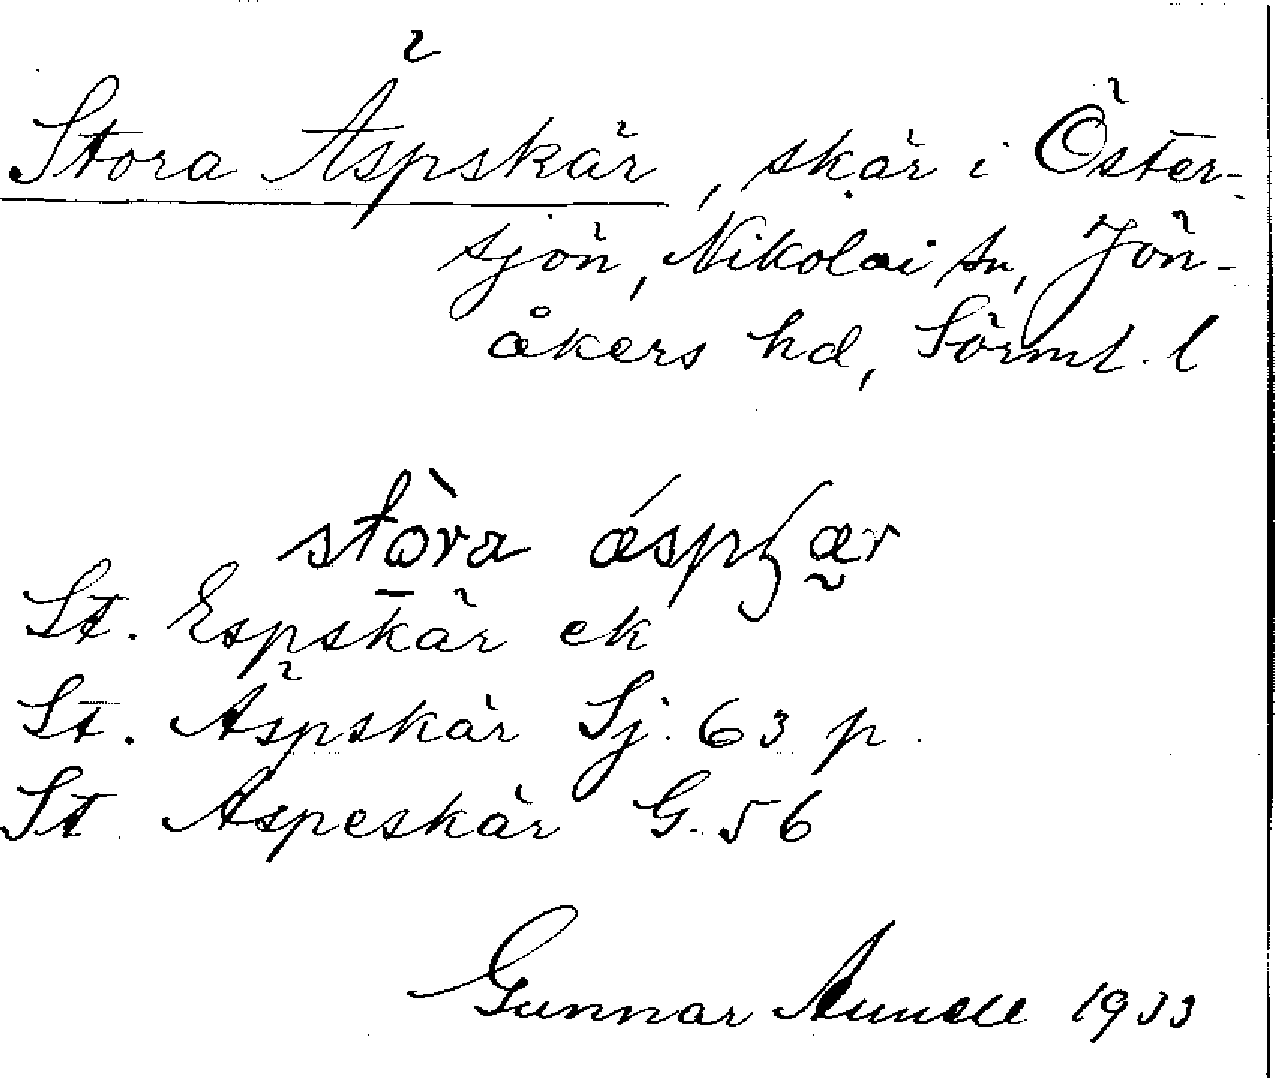 Stora Äspskär, skär i Öster-
sjön, Nikolai sn, Jön-
åkers hd, Sörml. l
stòra áspʃær
St. Espskär ek
St. Äspskär Sj. 63 p.
St. Aspeskär G. 56
Gunnar 1933